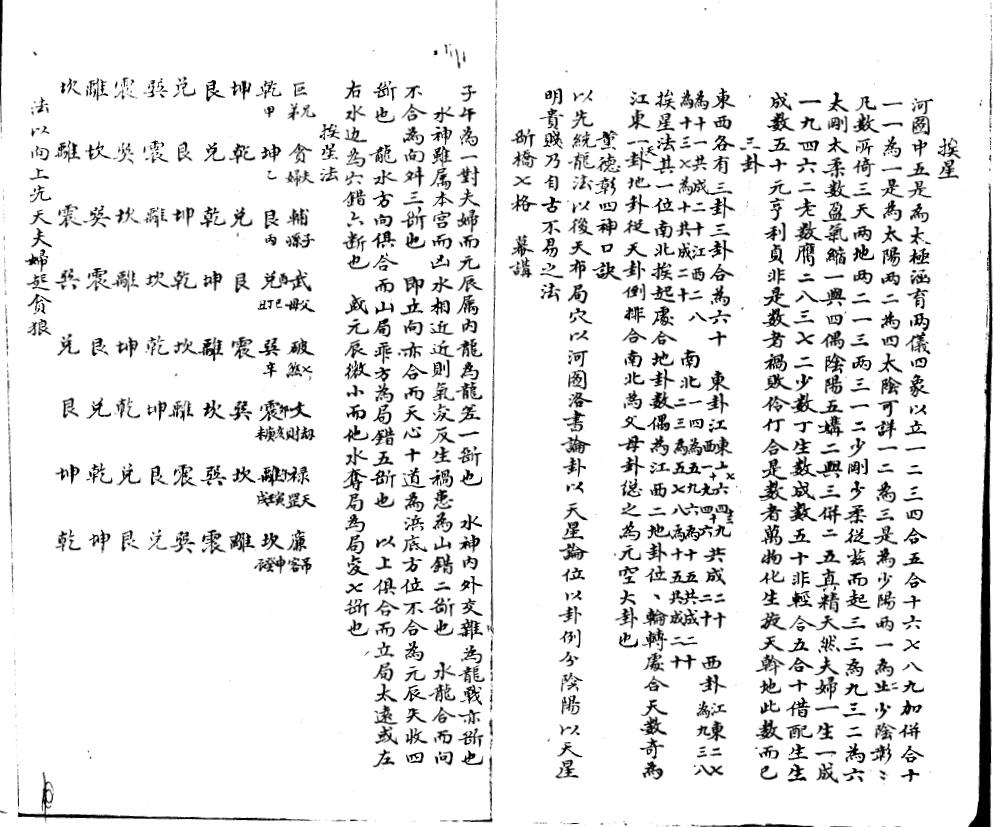 挨星
河圖中五是為太極涵育兩儀四象以立一二三四合五合十六七八九加併合十
一一為一是為太陽兩二為四太陰可詳一二為三是為少陽兩一為少陰彰彰
凡數所倚三天兩地兩二一三兩三一二少剛少柔從茲而起三三為九三二為六
太剛太柔數盈氣縮一與四偶陰陽五媾二與三併二五真精天然夫婦一生一成
一九四六二老數膺二八三七二少數丁生數成數五十非輕合五合十借配生生
成數五十元亨利貞非是數者禍敗伶仃合是數者萬物化生旋天幹地此數而已
三卦
東西各有三卦三卦合為六十 東卦江東 共成二十 西卦江東二七
為十一共成二十江西二八 南北一四為五九六為十五共成二十
為十三七為十共成二十 南北二三為五七八為十五共成二十
挨星法其一位南北挨起處合地卦數偶為江西二地卦位、輪轉處合天數奇為
江東一卦地卦從天卦倒排合南北為父母卦總之為元空大卦也
董德彰四神口訣
以先統龍法以後天布局穴以河圖洛書論卦以天星論位以卦例分陰陽以天星
明貴賤乃自古不易之法
斷橋七格 幕講
子午為一對夫婦而元辰属內龍為龍差一斷也 水神內外交雜為龍戰亦斷也
水神雖属本宮而凶水相近近則氣交反生禍患為山錯二斷也 水龍合而向
不合為向舛三斷也 即立向亦合而天心十道為浜底方位不合為元辰失收四
斷也 龍水方向俱合而山局乖方為局錯五斷也 以上俱合而立局太遠或左
右水边為穴錯六断也 或元辰微小而他水奪局為局変七斷也
挨星法
巨 兄弟 貪 夫婦 輔 子孫 武 父母 破 七煞 文 劫財 祿 天罡 廉 吊客
乾 甲 坤 乙 艮 丙 兌 巽 辛 震 離 坎
坤乾兌艮巽震離坎
艮兌乾坤坎離震巽
兌艮坤乾離坎巽震
巽震離坎乾坤艮兌
震巽坎離坤乾兌艮
離坎巽震艮兌乾坤
坎離震巽兌艮坤乾
法以向上先天夫婦起貪狼